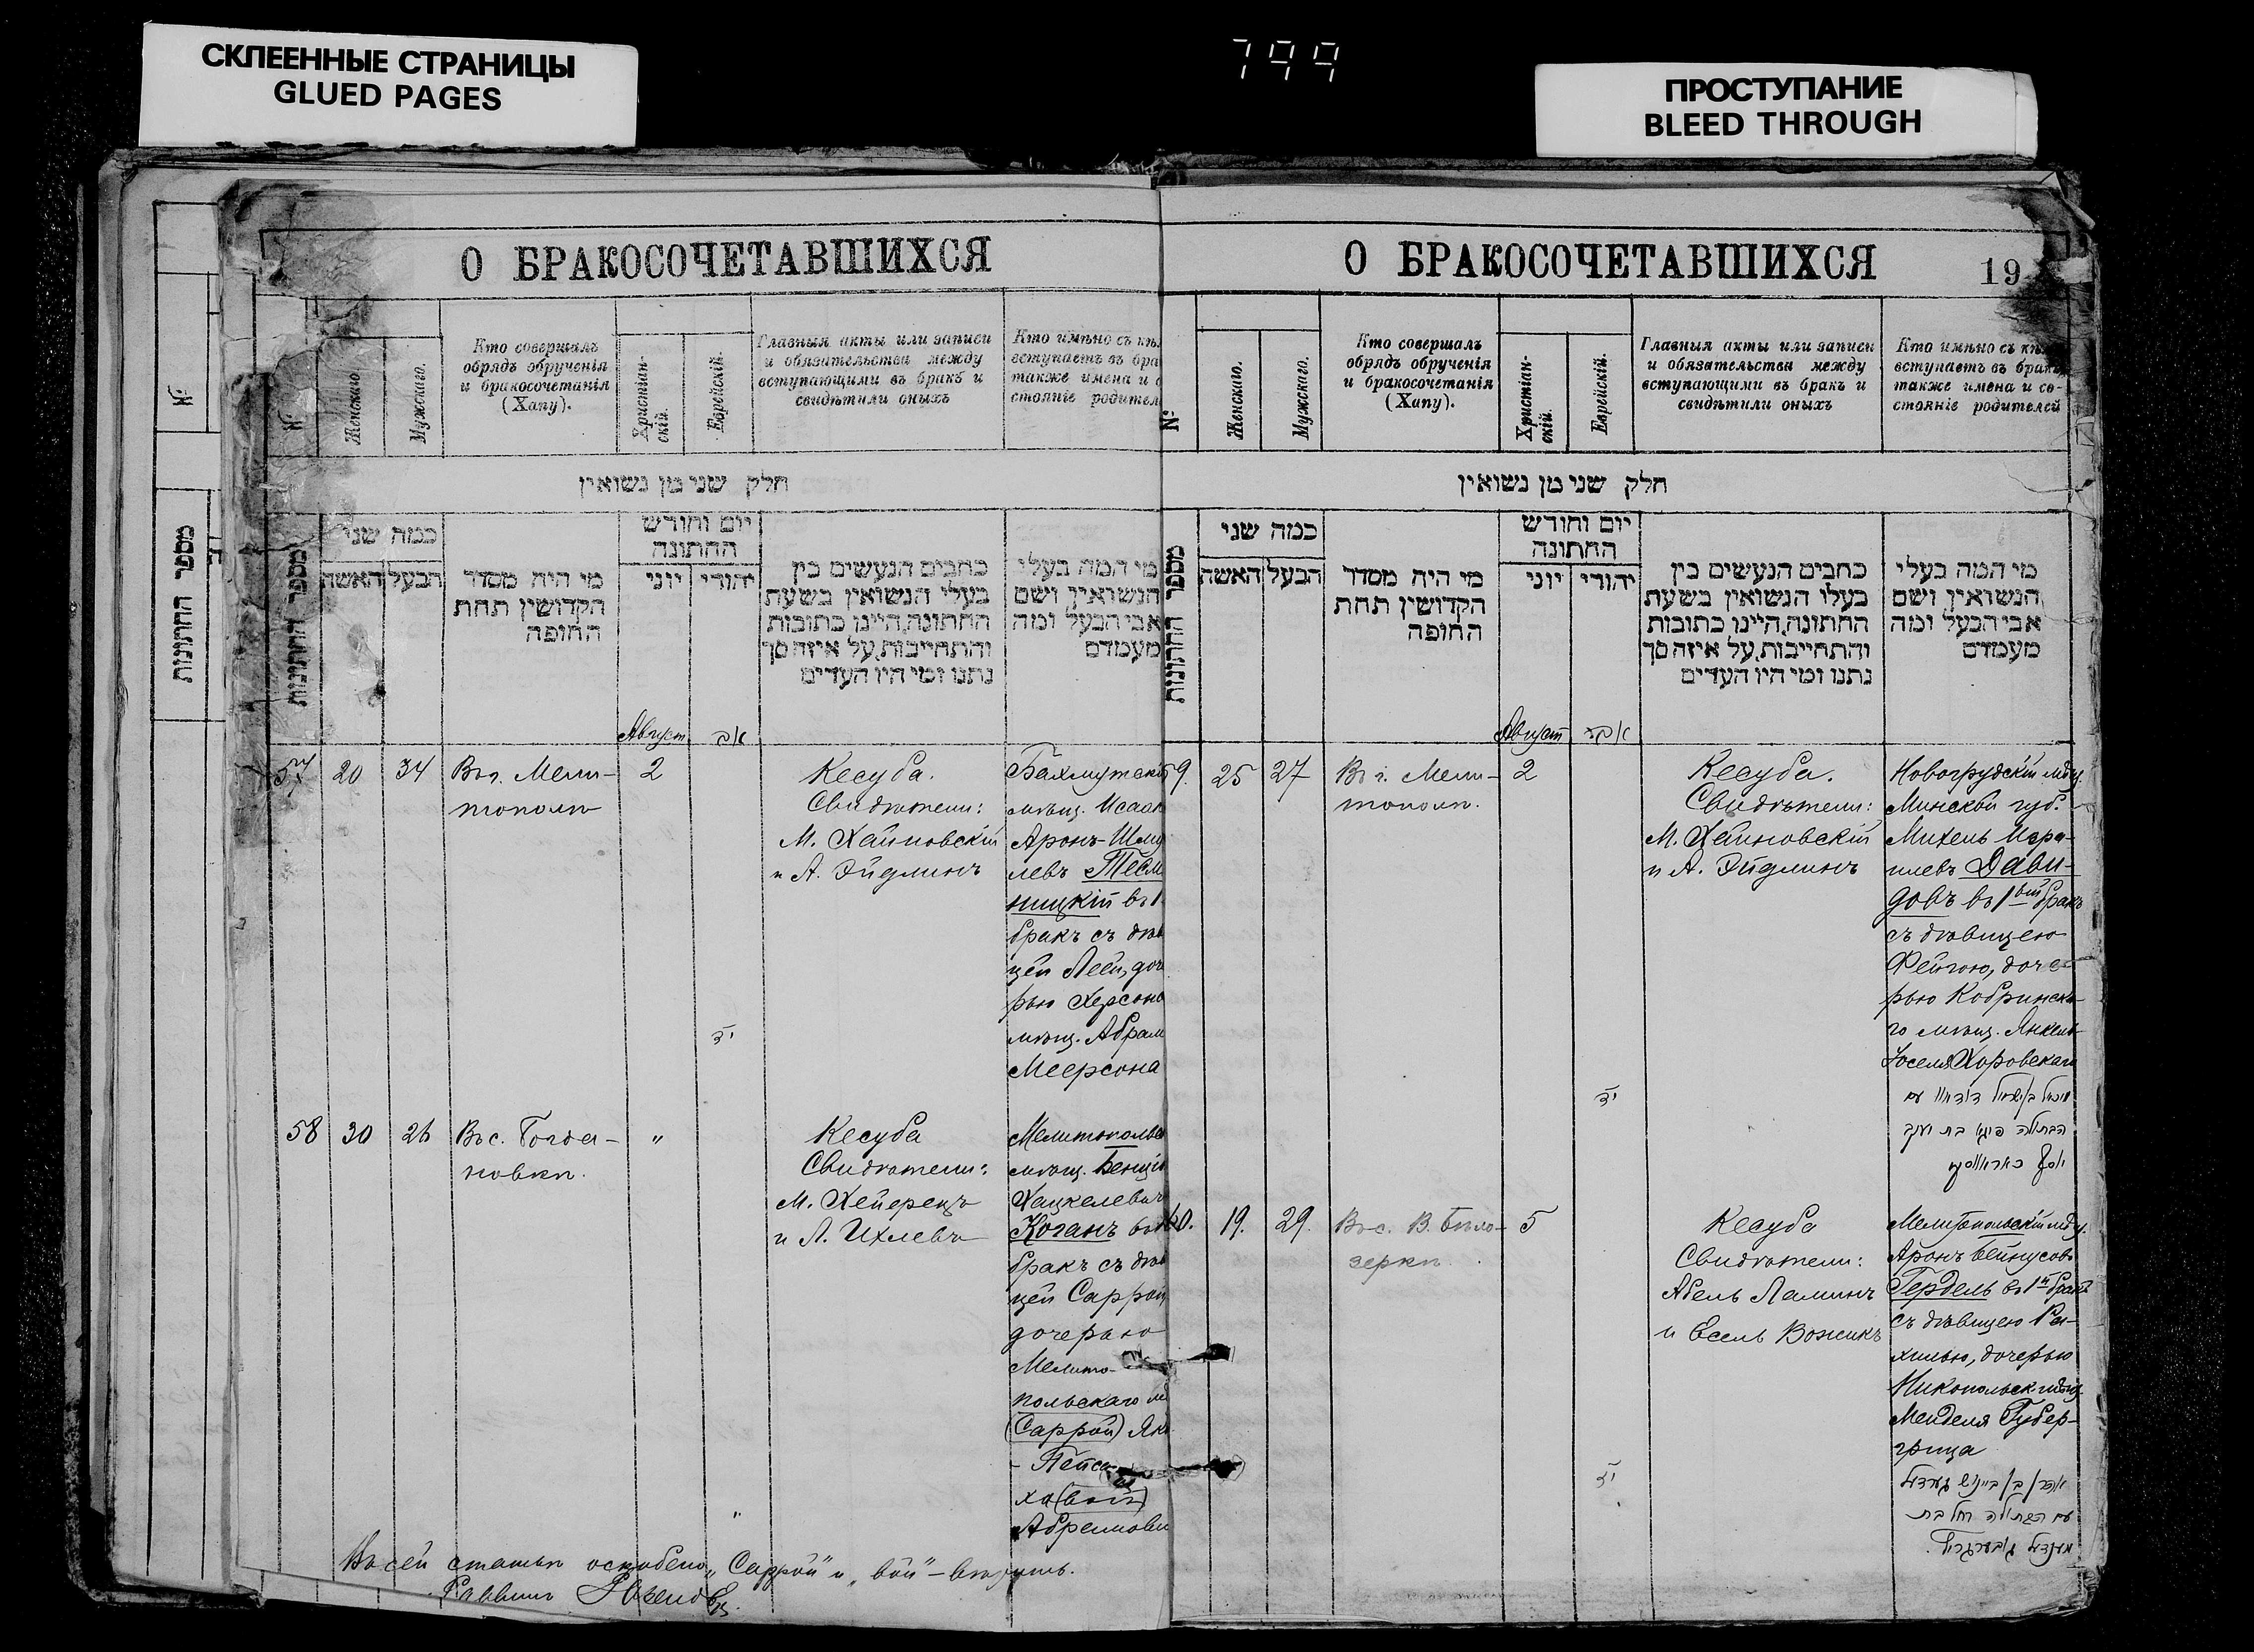 СКЛЕЕННЫЕ СТРАНИЦЫ
GLUED PAGES
799
ПРОСТУПАНИЕ
BLEED THROUGH
№
מספר החתונות
О БРАКОСОЧЕТАВШИХСЯ
№
Женскаго.
Мужскаго.
Кто совершалъ
обрядъ обрученія
и бракосочетанія
(Хапу).
Христіан-
скій.
Еврейскій.
Главныя акты или записи
и обязательства между
вступающими въ бракъ и
свидѣтили оныхъ
Кто имѣно съ кѣ
вступаетъ въ бра
также имена и с
стояніе родител
חלק שני מן נשואין
מספר החתונות
כמה שני
האשה
הבעל
מי היה מסדר
הקדושין תחת
החופה
יום וחודש
החתונה
יוני
יהודי
כתבים הנעשים בין
בעלי הנשואין בשעת
החתונה,היינו כתובות
והתחייבות,על איזה סך
נתנו ומי היו העדים
מי המה בעלי
הנשואין ושם
אבי הבעל ומה
מעמדם
Август
אב
57
20
34
Въ г. Мели-
тополѣ
2
יד
Кесуба.
Свидѣтели:
М. Хайновскій
и А. Эйдлинъ
Бахмутскі
мѣщ. Исаак
Аронъ-Шму
левъ Тесм
ницкій въ 1
бракъ съ дѣв
цей Леей, доч
рью Херсонс
мѣщ. Абрам
Меерсона
58
30
26
Въ с. Богда-
новкѣ.
"
"
Кесуба
Свидѣтели:
М. Хейерецъ
и Л. Ихлевъ
Мелитопольс
мѣщ. Бенціо
Хацкелевич
Коганъ во
бракъ съ дѣв
цей Саррой,
дочерью
Мелито-
польскаго мѣ
(Саррой) Янк
- Пейса-
ха (вой)
Абрамови
Въ сей статьѣ оскоблено „Саррой" и „вой" –
Раввинъ
О БРАКОСОЧЕТАВШИХСЯ
19
№
Женскаго.
Мужскаго.
Кто совершалъ
обрядъ обрученія
и бракосочетанія
(Хапу).
Христіан-
скій.
Еврейскій.
Главныя акты или записи
и обязательства между
вступающими въ бракъ и
свидѣтили оныхъ
Кто имѣно съ кѣ
вступаетъ въ бракъ,
также имена и со-
стояніе родителей
חלק שני מן נשואין
מספר החתונות
כמה שני
האשה
הבעל
מי היה מסדר
הקדושין תחת
החופה
יום וחודש
החתונה
יוני
יהודי
כתבים הנעשים בין
בעלי הנשואין בשעת
החתונה,היינו כתובות
והתחייבות,על איזה סך
נתנו ומי היו העדים
מי המה בעלי
הנשואין ושם
אבי הבעל ומה
מעמדם
Август
אב
59.
25
27
Въ г. Мели-
тополѣ.
2
יד
Кесуба.
Свидѣтели:
М. Хайновскій
и А. Эйдлинъ
Новогрудскій мѣщ.
Минской губ.
Михель Изра-
илевъ Дави-
довъ въ 1ый бракъ
съ дѣвицею
Фейгою, доче-
рью Кобринска-
го мѣщ. Янкель-
Іоселя Хоровскаго
מיכל בן ישראל דודאוו עם
הבתולה פייגא בת יעקב
יוסף כאראווסקי
60.
19.
29.
Въ с. В. Бѣло-
зеркѣ.
5
יז
Кесуба
Свидѣтели:
Абель Ламинъ
и Есель Вожикъ
Мелитопольскій мѣщ.
Аронъ Бейнусовъ
Гердель въ 1й бракъ
съ дѣвицею Ра-
хилью, дочерью
Никопольск. мѣщ.
Менделя Губер-
грица
אהרן בן ביינוש גערדעל
עם הבתולה רחל בת
מענדעל גובערגריץ.